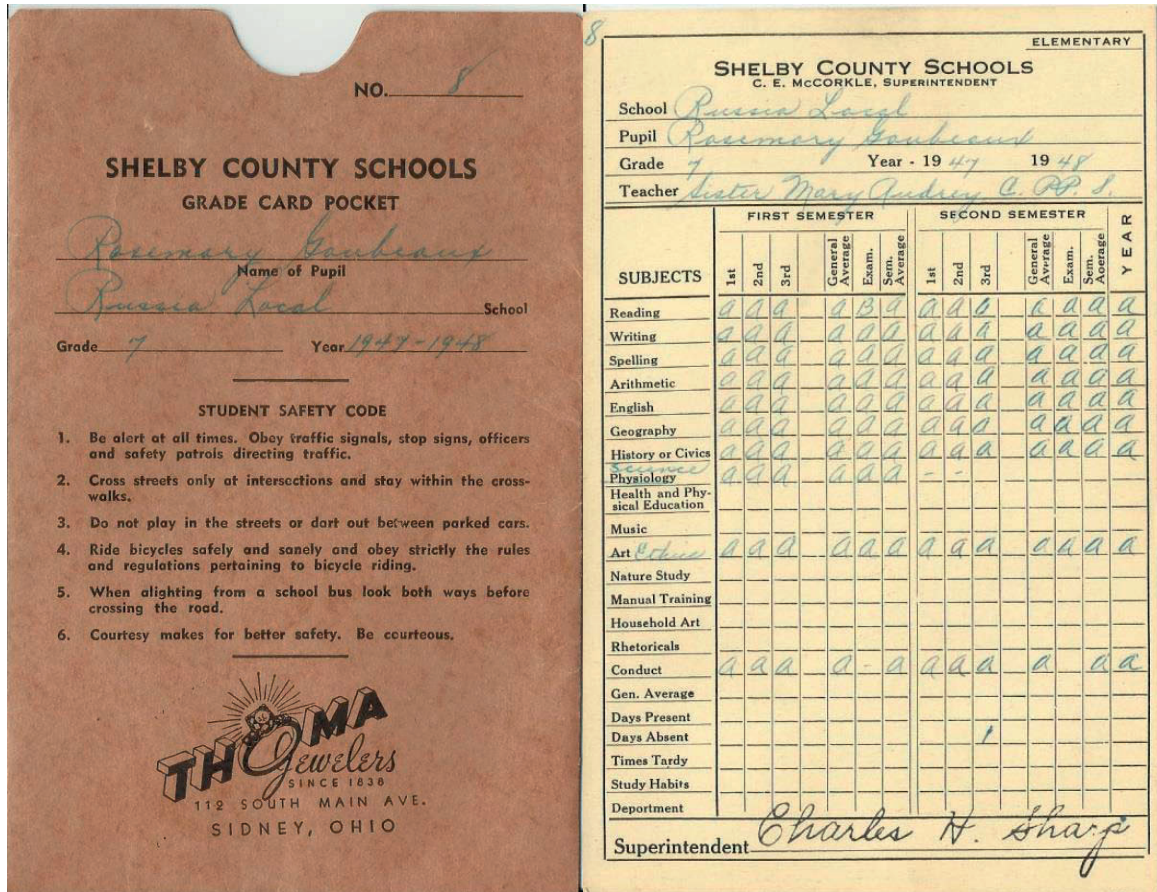 NO. 8
SHELBY COUNTY SCHOOLS
GRADE CARD POCKET
Rosemary Goubeaux
Name of Pupil
Russia Local School
Grade 7 Year 1947-1948
STUDENT SAFETY CODE
1. Be alert at all times. Obey traffic signals, stop signs, officers
and safety patrols directing traffic.
2. Cross streets only at intersections and stay within the cross-
walks.
3. Do not play in the streets or dart out between parked cars.
4. Ride bicycles safely and sanely and obey strictly the rules
and regulations pertaining to bicycle riding.
5. When alighting from a school bus look both ways before
crossing the road.
6. Courtesy makes for better safety. Be courteous.
THOMA
Jewelers
SINCE 1838
112 SOUTH MAIN AVE.
SIDNEY, OHIO
8
ELEMENTARY
SHELBY COUNTY SCHOOLS
C. E. McCORKLE, SUPERINTENDENT
School Russia Local
Pupil Rosemary Goubeaux
Grade 7 Year - 19 47 19 48
Teacher Sister Mary Audrey C. PP. S.
FIRST SEMESTER SECOND SEMESTER
SUBJECTS 1st 2nd 3rd General Average Exam. Sem. Average 1st 2nd 3rd General Average Exam. Sem. Aoerage YEAR
Reading a a a a B a a a a a a a a
Writing a a a a a a a a a a a a a
Spelling a a a a a a a a a a a a a
Arithmetic a a a a a a a a a a a a a
English a a a a a a a a a a a a a
Geography a a a a a a a a a a a a a
History or Civics a a a a a a a a a a a a a
Science
Physiology a a a a a a - -
Health and Phy-
sical Education
Music
Art a a a a a a a a a a a a a
Nature Study
Manual Training
Household Art
Rhetoricals
Conduct a a a a - a a a a a a a
Gen. Average
Days Present
Days Absent 1
Times Tardy
Study Habits
Department
Superintendent Charles H. Sharp